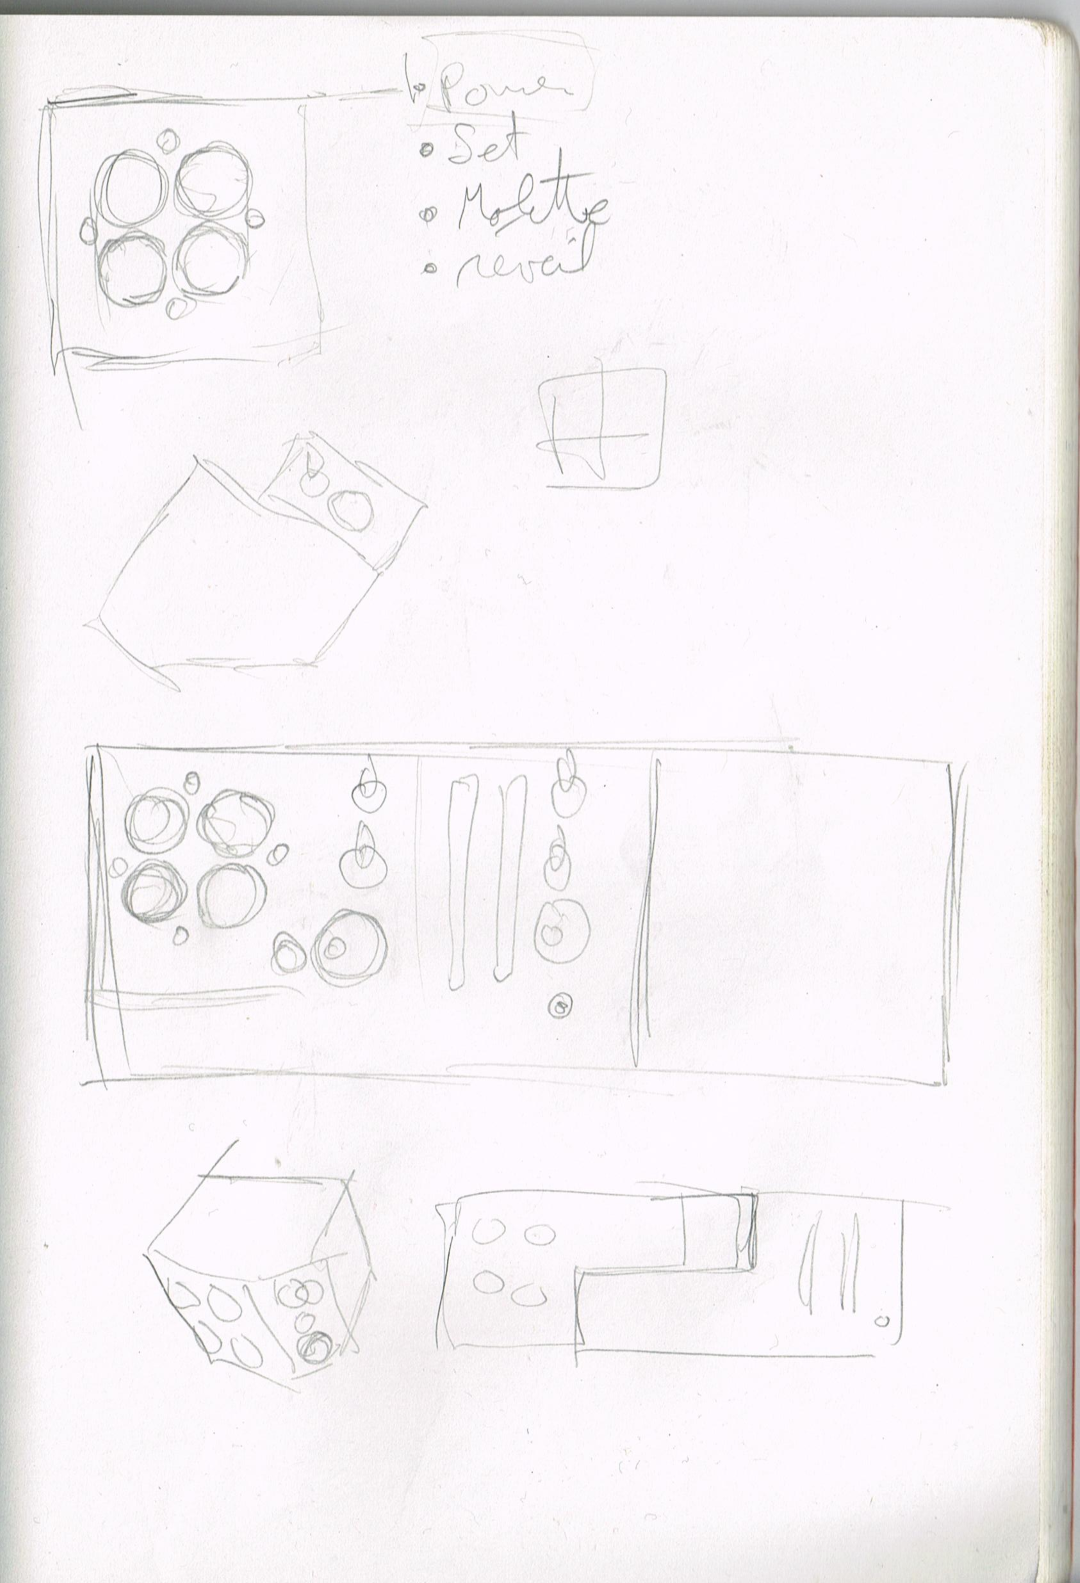 Power
Set
Molette
reveil